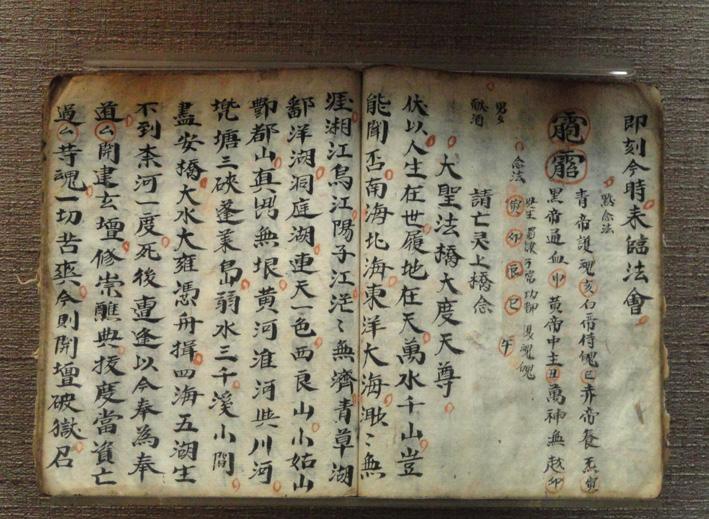 即刻今時来臨法會
默念法
青帝護魂亥白帝侍魄巳赤帝養炁寅
黑帝通血申黃帝中主丑萬神無越卯
念法
寅卯辰巳午
男女
献酒
請亡灵上橋念
大聖法橋大度天尊
伏以人生在世履地在天萬水千山豈
能閘否南海北海東洋大海渺〻無
涯湘江烏江陽子江茫〻無濟青草湖
鄱洋湖洞庭湖連天一色西良山小姑山
酆都山真無垠黃河淮河與川河
塘三硤蓬萊島蒻水三千溪小間
盡安橋大水大雍憑舟揖四海五湖生
不到柰河一度死後亶逢以今奉為奉
道厶開建玄壇修崇醮典拔度當資亡
過厶等魂一切苦爽今則開壇破獄召